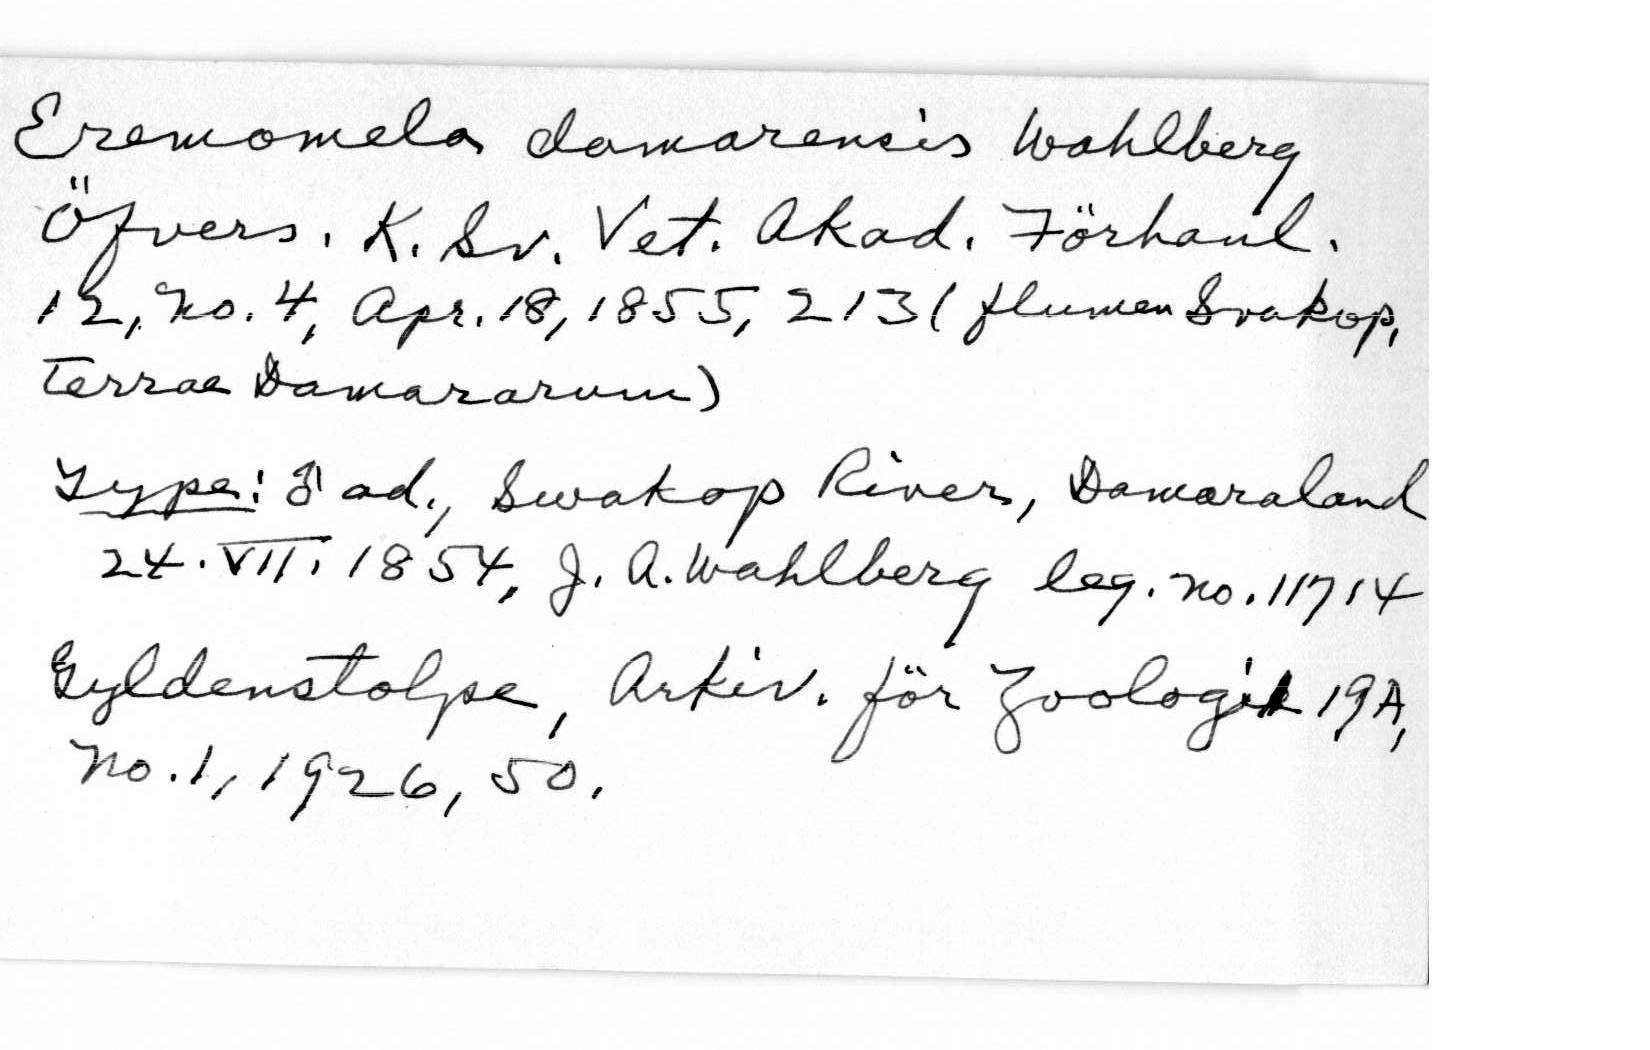 Eremomela damarensis Wahlberg
Öfvers. K. Sv. Vet. Akad. Förhanl.
12, no. 4, Apr. 18, 1855, 213 (flumen Svakop,
Terrae Damararum)
Type: ♂ ad., Swakop River, Damaraland
24. VII. 1854, J. A. Wahlberg leg. no. 11714
Gyldenstolpe, Arkiv. för Zoologi 19A,
no. 1, 1926, 50.